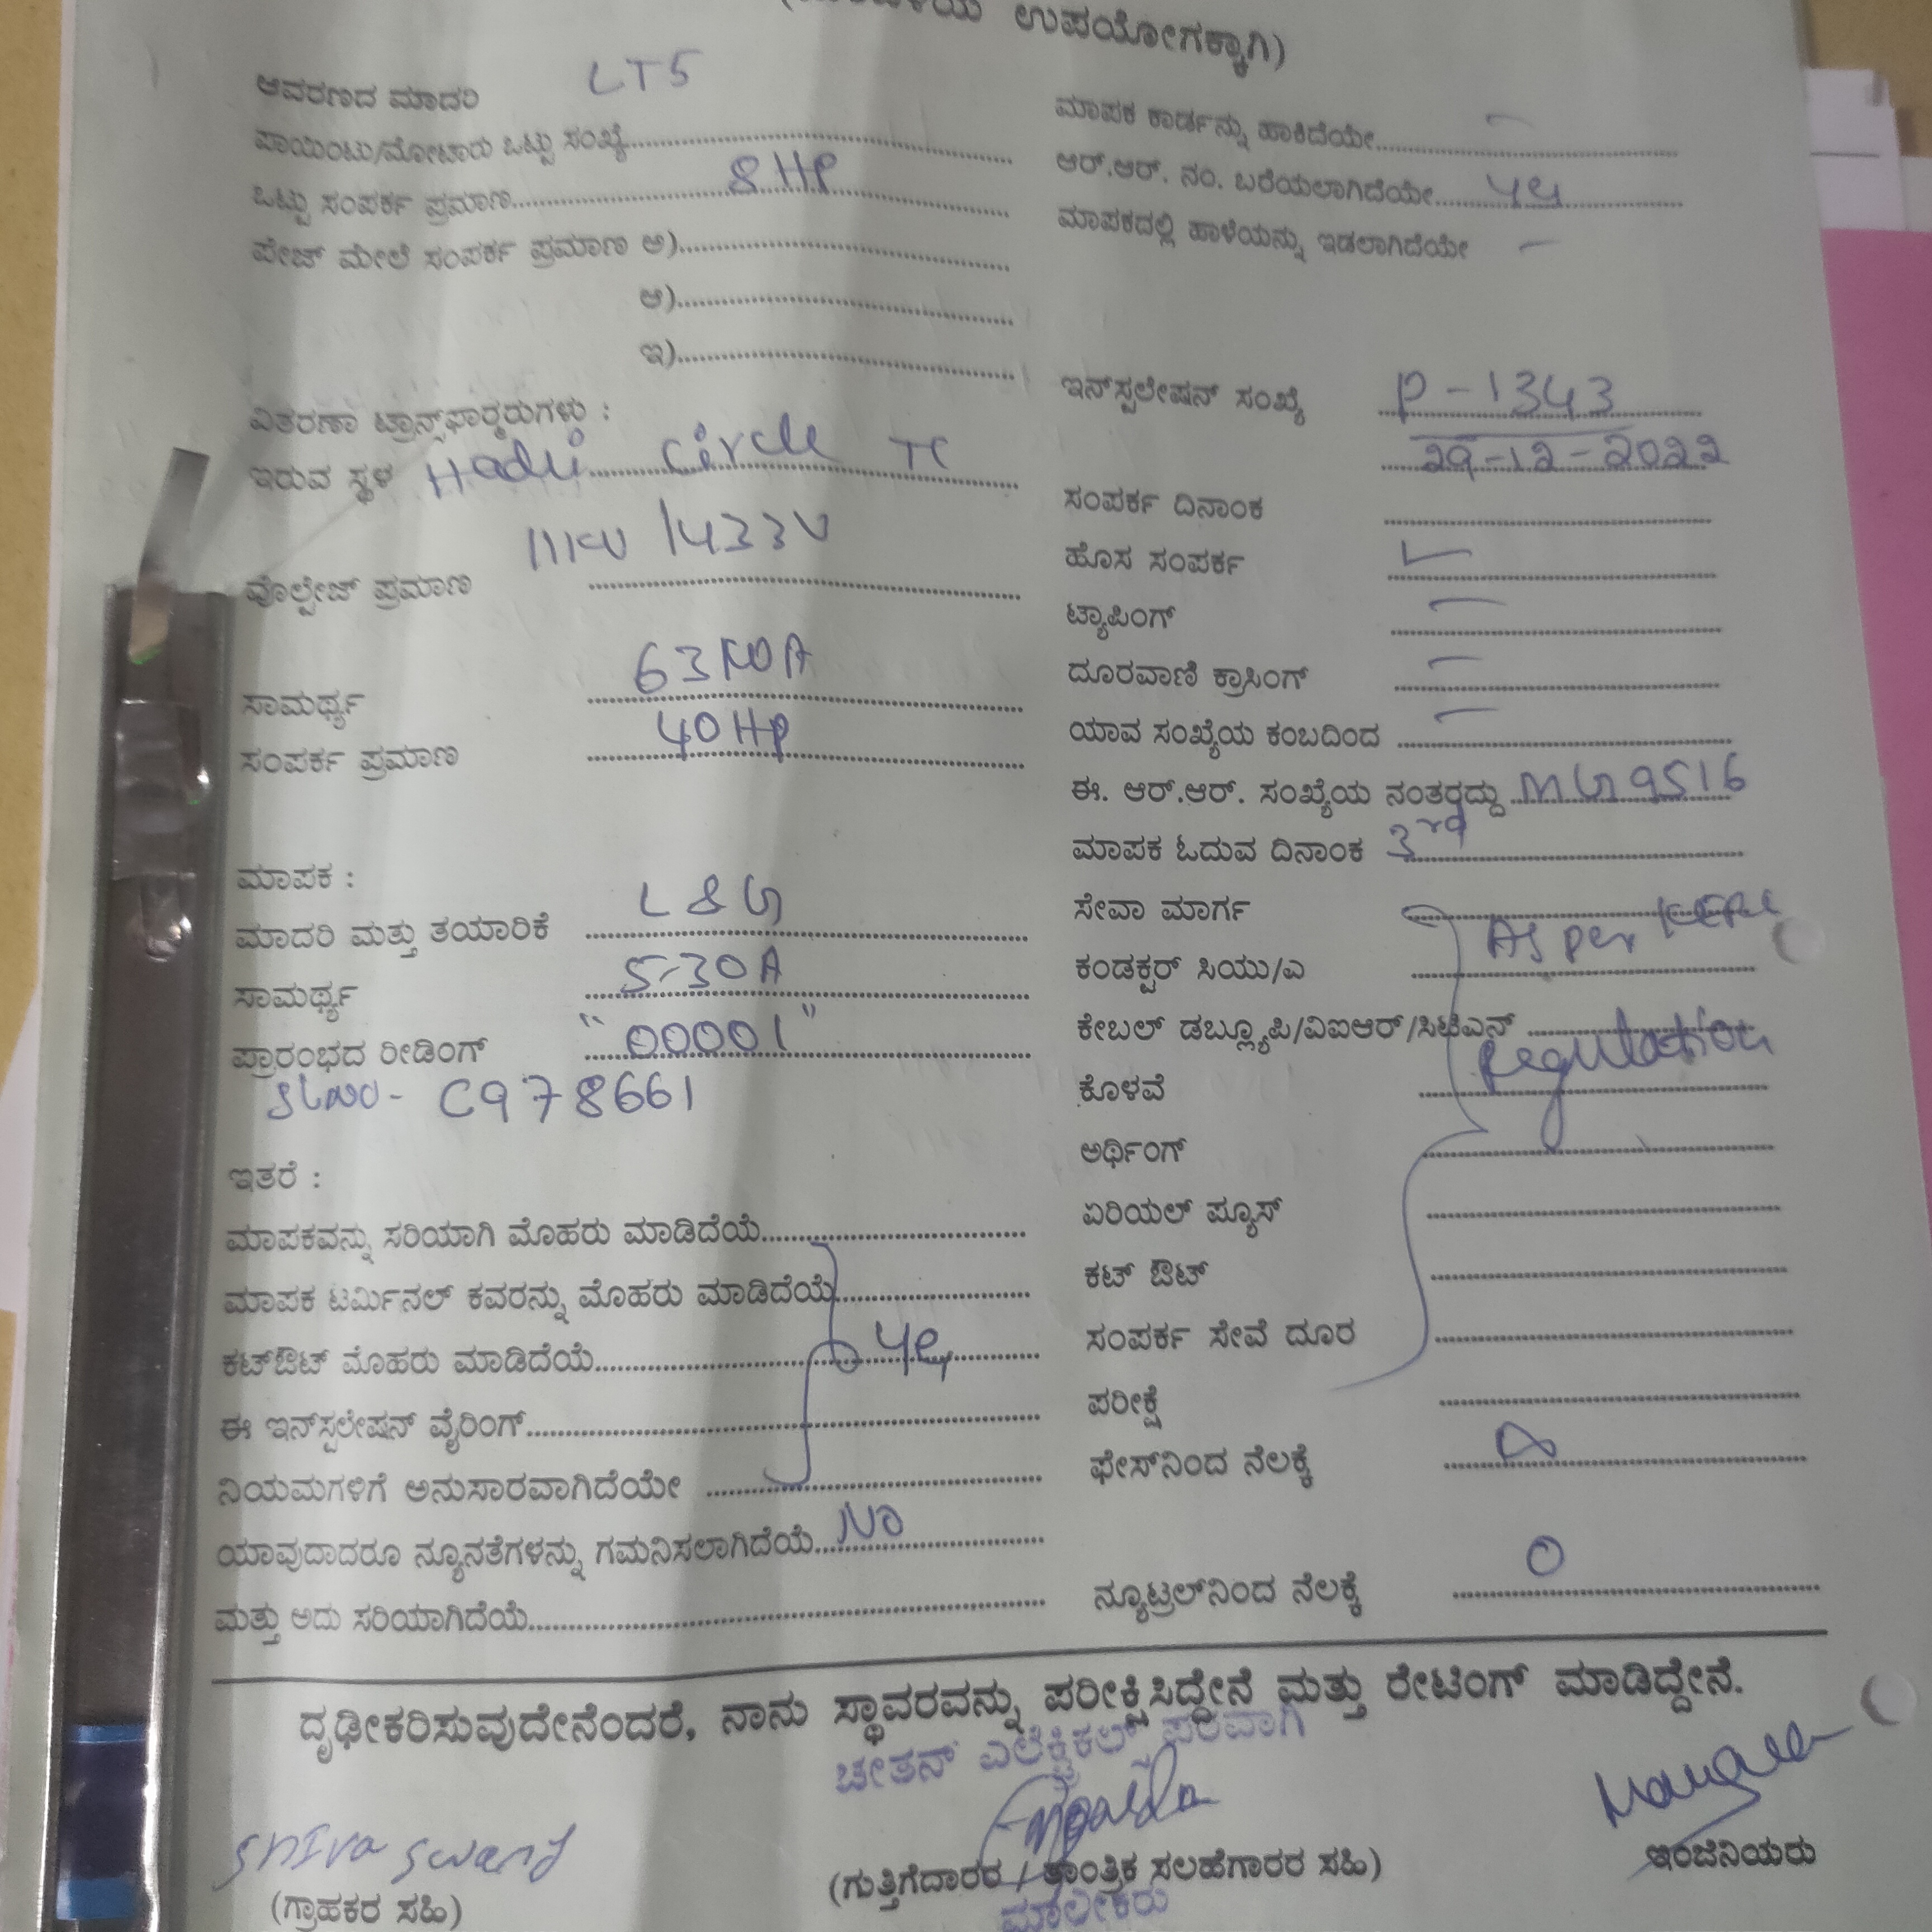 ಉಪಯೋಗಕ್ಕಾಗಿ)
ಆವರಣದ ಮಾದರಿ LT5
ಪಾಯಿಂಟು/ಮೋಟಾರು ಒಟ್ಟು ಸಂಖ್ಯೆ
ಒಟ್ಟು ಸಂಪರ್ಕ ಪ್ರಮಾಣ 8 HP
ಪೇಜ್ ಮೇಲೆ ಸಂಪರ್ಕ ಪ್ರಮಾಣ ಅ)
ಆ)
ಇ)
ವಿತರಣಾ ಟ್ರಾನ್ಸ್‌ಫಾರ್‍ಮರುಗಳು :
ಇರುವ ಸ್ಥಳ Circle TC
ವೊಲ್ಟೇಜ್ ಪ್ರಮಾಣ 11KV /433V
ಸಾಮರ್ಥ್ಯ 63KVA
ಸಂಪರ್ಕ ಪ್ರಮಾಣ 40HP
ಮಾಪಕ :
ಮಾದರಿ ಮತ್ತು ತಯಾರಿಕೆ L&G
ಸಾಮರ್ಥ್ಯ 5-30A
ಪ್ರಾರಂಭದ ರೀಡಿಂಗ್ "00001"
Slno- C978661
ಇತರೆ :
ಮಾಪಕವನ್ನು ಸರಿಯಾಗಿ ಮೊಹರು ಮಾಡಿದೆಯೆ
ಮಾಪಕ ಟರ್ಮಿನಲ್ ಕವರನ್ನು ಮೊಹರು ಮಾಡಿದೆಯೆ
ಕಟ್‌ಔಟ್ ಮೊಹರು ಮಾಡಿದೆಯೆ Yes
ಈ ಇನ್‌ಸ್ಪಲೇಷನ್ ವೈರಿಂಗ್
ನಿಯಮಗಳಿಗೆ ಅನುಸಾರವಾಗಿದೆಯೇ
ಯಾವುದಾದರೂ ನ್ಯೂನತೆಗಳನ್ನು ಗಮನಿಸಲಾಗಿದೆಯೆ No
ಮತ್ತು ಅದು ಸರಿಯಾಗಿದೆಯೆ
ಮಾಪಕ ಕಾರ್ಡನ್ನು ಹಾಕಿದೆಯೇ —
ಆರ್.ಆರ್. ನಂ. ಬರೆಯಲಾಗಿದೆಯೇ
ಮಾಪಕದಲ್ಲಿ ಹಾಳೆಯನ್ನು ಇಡಲಾಗಿದೆಯೇ —
ಇನ್‌ಸ್ಪಲೇಷನ್ ಸಂಖ್ಯೆ P-1343
29-12-2022
ಸಂಪರ್ಕ ದಿನಾಂಕ
ಹೊಸ ಸಂಪರ್ಕ ✓
ಟ್ಯಾಪಿಂಗ್ —
ದೂರವಾಣಿ ಕ್ರಾಸಿಂಗ್ —
ಯಾವ ಸಂಖ್ಯೆಯ ಕಂಬದಿಂದ —
ಈ. ಆರ್.ಆರ್. ಸಂಖ್ಯೆಯ ನಂತರ‍ದ್ದು MG9516
ಮಾಪಕ ಓದುವ ದಿನಾಂಕ 3rd
ಸೇವಾ ಮಾರ್ಗ
ಕಂಡಕ್ಟರ್ ಸಿಯು/ಎ As per
ಕೇಬಲ್ ಡಬ್ಲ್ಯೂಪಿ/ವಿಐಆರ್/ಸಿಟಿಎಸ್ Regulation
ಕೊಳವೆ
ಅರ್ಥಿಂಗ್
ಏರಿಯಲ್ ಫ್ಯೂಸ್
ಕಟ್ ಔಟ್
ಸಂಪರ್ಕ ಸೇವೆ ದೂರ
ಪರೀಕ್ಷೆ
ಫೇಸ್‌ನಿಂದ ನೆಲಕ್ಕೆ
ನ್ಯೂಟ್ರಲ್‌ನಿಂದ ನೆಲಕ್ಕೆ 0
ದೃಢೀಕರಿಸುವುದೇನೆಂದರೆ, ನಾನು ಸ್ಥಾವರವನ್ನು ಪರೀಕ್ಷಿಸಿದ್ದೇನೆ ಮತ್ತು ರೇಟಿಂಗ್ ಮಾಡಿದ್ದೇನೆ.
ಚೇತನ್ ಎಲೆಕ್ಟ್ರಿಕಲ್ಸ್ ಪರವಾಗಿ
Shiva Swamy
(ಗ್ರಾಹಕರ ಸಹಿ)
(ಗುತ್ತಿಗೆದಾರರ / ತಾಂತ್ರಿಕ ಸಲಹೆಗಾರರ ಸಹಿ)
ಮಾಲೀಕರು
ಇಂಜಿನಿಯರು